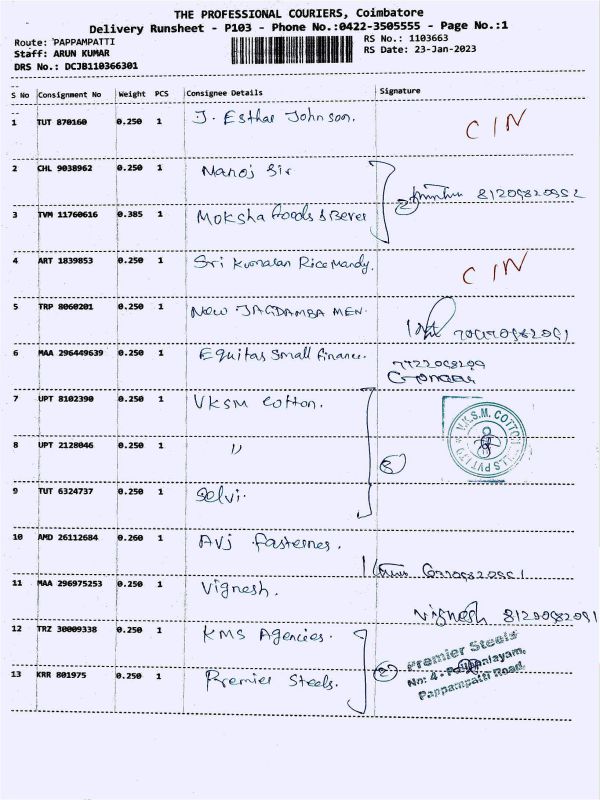 THE PROFESSIONAL COURIERS, Coimbatore
Delivery Runsheet - P103 - Phone No.:0422-3505555 - Page No.:1
Route: PAPPAMPATTI
Staff: ARUN KUMAR
DRS No.: DCJB110366301
RS No.: 1103663
RS Date: 23-Jan-2023
S No Consignment No Weight PCS Consignee Details Signature
1 TUT 870160 0.250 1 J. Esthar Johnson. CIN
2 CHL 9038962 0.250 1 Manoj Sir
3 TVM 11760616 0.385 1 Moksha foods & Bever
2
4 ART 1839853 0.250 1 Sri Kumaran Rice Mandy. CIN
5 TRP 8060201 0.250 1 NEW JAGDAMBA MEN.
6 MAA 296449639 0.250 1 Equitas Small finance.
7 UPT 8102390 0.250 1 VKSM Cotton.
8 UPT 2128046 0.250 1 "
3
V.K.S.M. COTTON MILLS PVT LTD
9 TUT 6324737 0.250 1 Selvi.
10 AMD 26112684 0.260 1 AVJ fasternes.
11 MAA 296975253 0.250 1 Vignesh. Vignesh
12 TRZ 30009338 0.250 1 KMS Agencies.
13 KRR 801975 0.250 1 Premier Steels.
2
Premier Steels
Pappampatti Road.